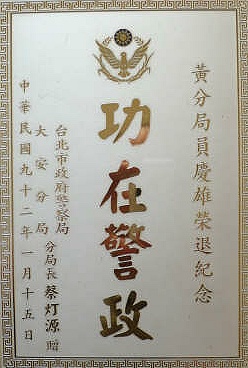 黃分局員慶雄榮退紀念
功在警政
台北市政府警察局
大安分局
分局長 蔡灯源 贈
中華民國九十二年一月十五日